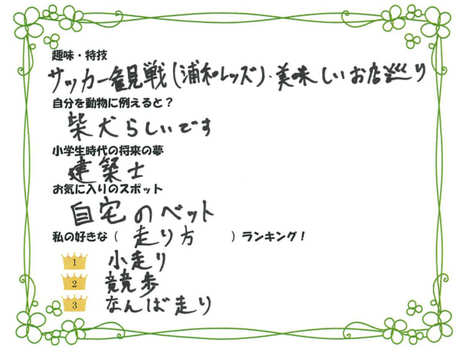 趣味・特技
サッカー観戦(浦和レッズ)・美味しいお店巡り
自分を動物に例えると?
柴犬らしいです
小学生時代の将来の夢
建築士
お気に入りのスポット
自宅のベット
私の好きな( 走り方 )ランキング!
1 小走り
2 競歩
3 なんば走り